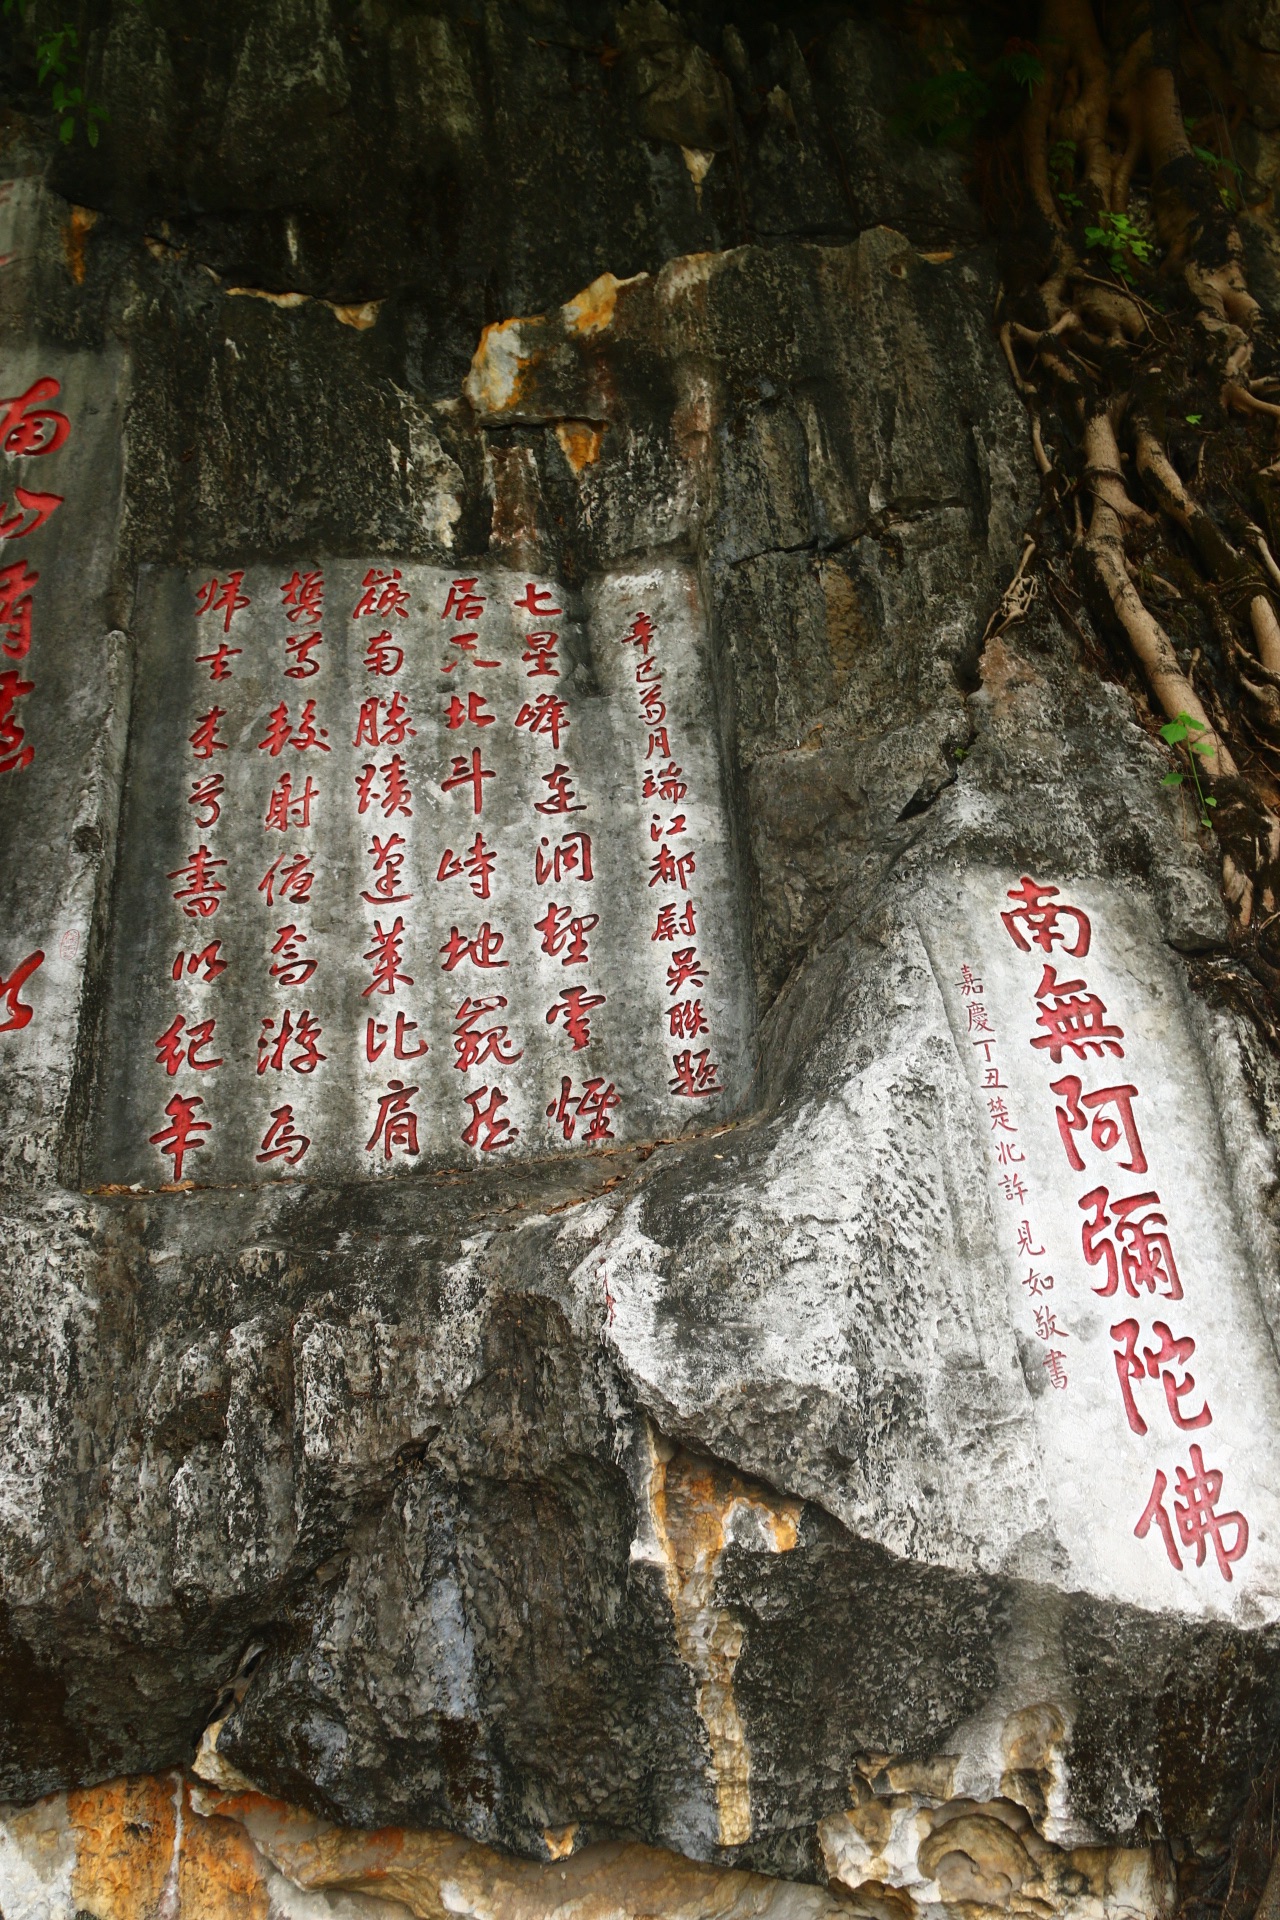 南無阿彌陀佛
嘉慶丁丑楚北許見如敬書
辛巳月端江都尉吳聯題
七星峰連洞裡雲煙
居天北斗峙地巍然
嶺南勝蹟蓬萊比肩
攜較射焉游焉
歸去來兮書以紀年
南山有